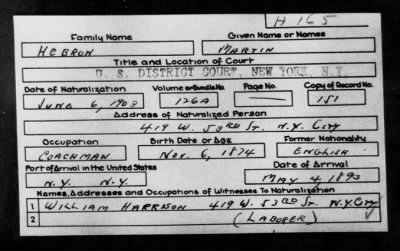 H 165
Family Name Given Name or Names
HEBRON MARTIN
Title and Location of Court
U. S. DISTRICT COURT, NEW YORK, N.Y.
Date of Naturalization Volume or Bundle No. Page No. Copy of Record No.
JUNE 6, 1903 126A — 151
Address of Naturalized Person
419 W. 53RD ST. N.Y. CITY
Occupation Birth Date or Age Former Nationality
COACHMAN NOV. 6, 1874 ENGLISH
Port of Arrival in the United States Date of Arrival
N.Y. N.Y. MAY 4, 1893
Names, Addresses and Occupations of Witnesses To Naturalization
1 WILLIAM HARRISON 419 W. 53RD ST. N.Y. CITY
2 (LABORER)